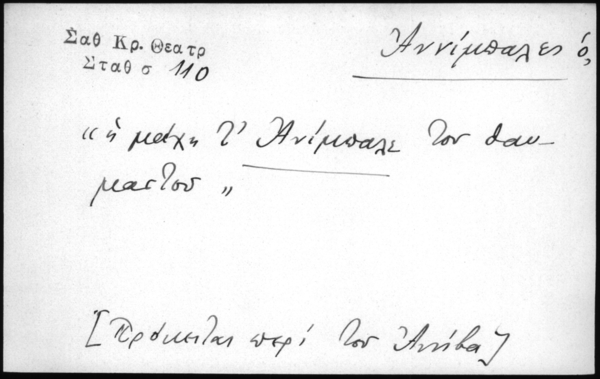 Σαθ Κρ. Θεατρ
Σταθ σ 110
Ἀννίμπαλες ὁ,
“ ἡ μάχη τ' Ἀνίμπαλε του θαυ-
μαστου „
[πρόκειται περί του Ἀννίβα]